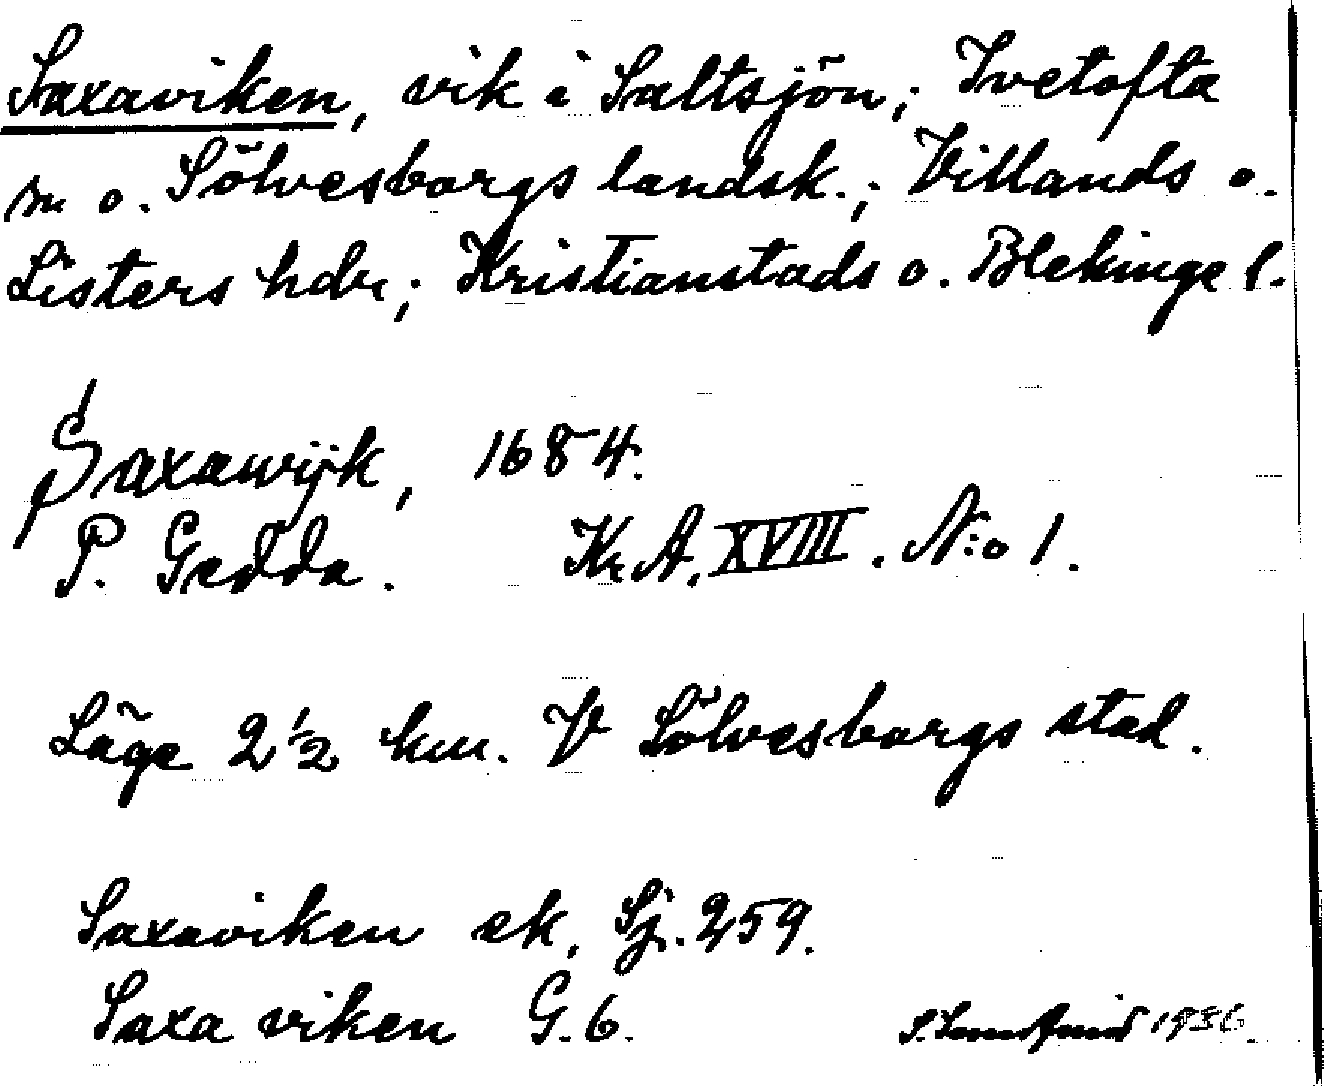 Saxaviken, vik i Saltsjön; Ivetofta
sn o. Sölvesborgs landsk.; Villands o.
Listers hdr; Kristianstads o. Blekinge l.
Saxawijk, 1684.
P. Gedda. Kr.A. XVIII. N:o 1.
Läge 2 ½ km. V Sölvesborgs stad.
Saxaviken ek. Sj. 259.
Saxa viken G. 6.
1936.